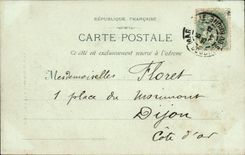 RÉPUBLIQUE FRANÇAISE
CARTE POSTALE
Ce côté est exclusivement réservé à l'adresse
Mesdemoiselles Floret
1 place du Morimont
Dijon
Côte d'or